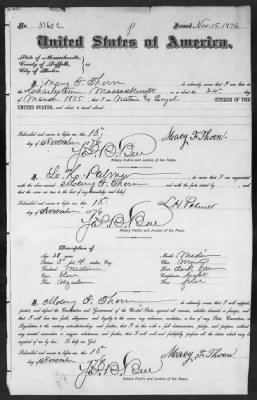 No. 51602
Issued Nov. 15, 1876
United States of America.
State of Massachusetts,
County of Suffolk, ss
City of Boston.
I, Mary F. Thorn do solemnly swear that I was born in
Charlestown Massachusetts on the 24th
of March 1855 that I am a Native & Loyal CITIZEN OF THE
UNITED STATES, and about to travel abroad.
Subscribed and sworn to before me this 15th
of November 1876
Mary F. Thorn
Notary Public and Justice of the Peace.
I, L. H. Palmer do solemnly swear that I am acquainted with
the above named Mary F. Thorn and with the facts stated by
above are true to the best of my knowledge and belief.
Subscribed and sworn to before me this 15th
of November 1876
L H Palmer
Notary Public and Justice of the Peace.
Description of
Age
Stature 5 feet 4 inches, Eng.
Forehead Medium
Eyes
Nose Regular
Mouth
Chin
Hair
Complexion Light
Face
I, Mary F. Thorn do solemnly swear that I will support,
protect, and defend the Constitution and Government of the United States against all enemies, whether domestic or foreign, and
that I will bear true faith, allegiance, and loyalty to the same, any ordinance, resolution, or law of any State, Convention, or
Legislature to the contrary notwithstanding, and further, that I do this with a full determination, pledge, and purpose, without
any mental reservation or evasion whatsoever, and further, that I will well and faithfully perform all the duties which may be
required of me by law. So help me God.
Subscribed and sworn to before me this 15th
of November 1876
Mary F. Thorn
Notary Public and Justice of the Peace.